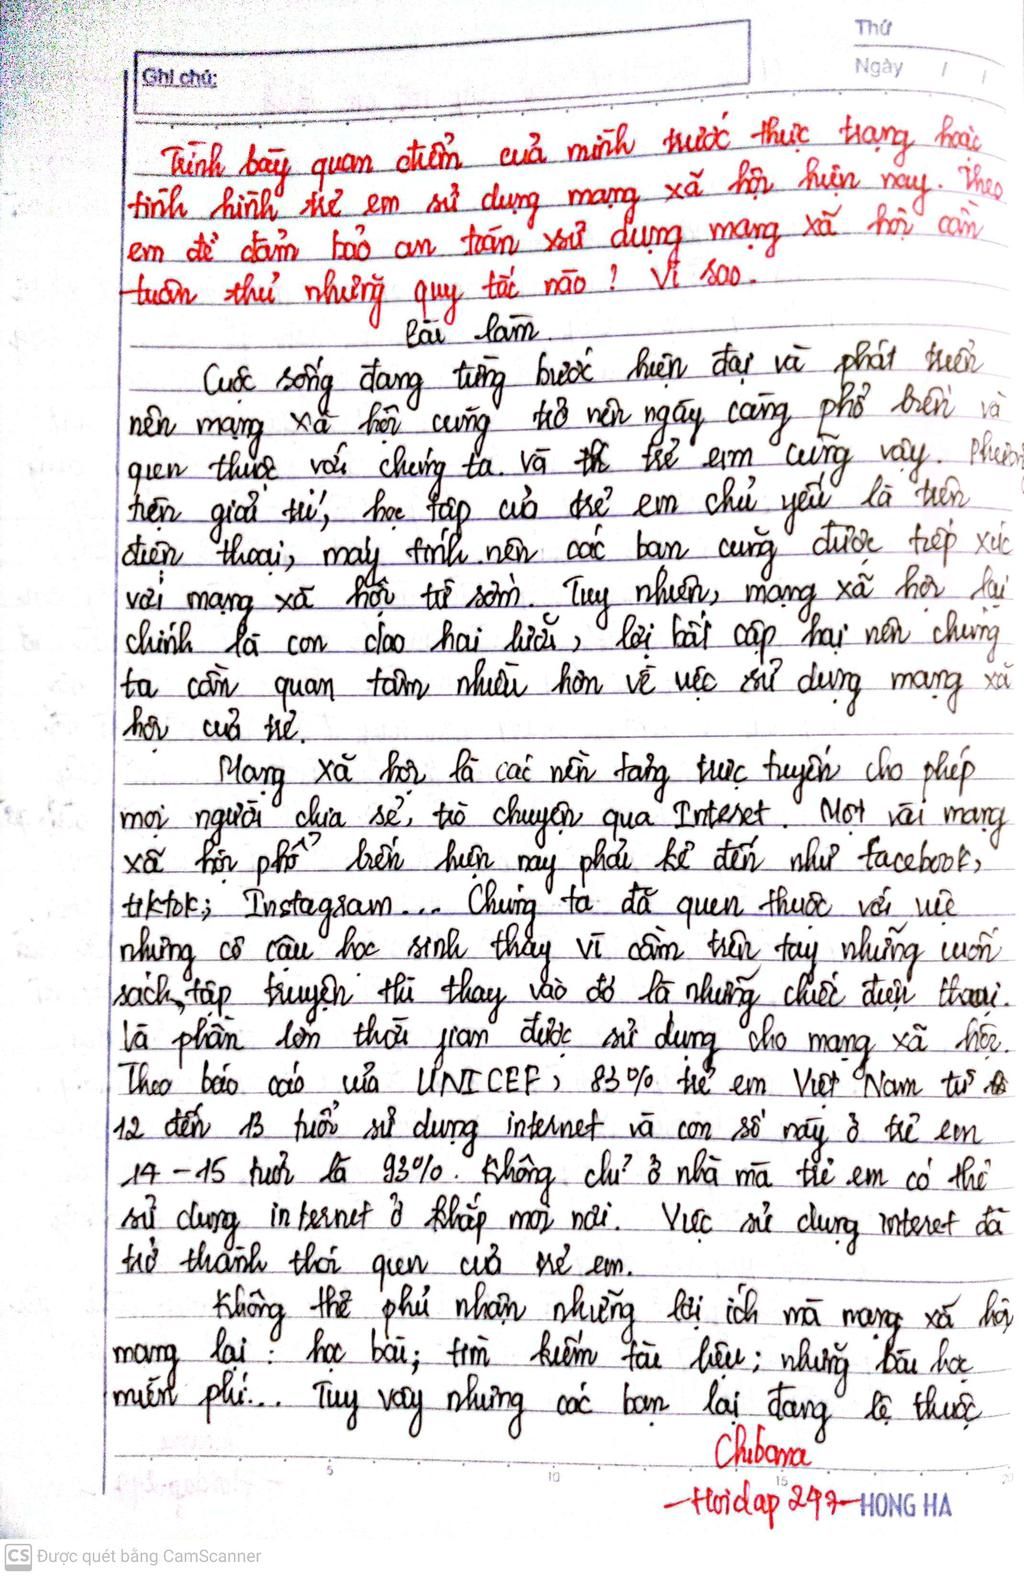 Thứ
Ghi chú:
Ngày / /
Trình bày quan điểm của mình trước thực trạng hoặc
tình hình trẻ em sử dụng mạng xã hội hiện nay. Theo
em để đảm bảo an toàn xử dụng mạng xã hội cần
tuân thủ những quy tắc nào? Vì sao.
Bài làm
Cuộc sống đang từng bước hiện đại và phát triển
nên mạng xã hội cũng trở nên ngày càng phổ biến và
quen thuộc với chúng ta. Và trẻ em cũng vậy. Phương
tiện giải trí, học tập của trẻ em chủ yếu là trên
điện thoại, máy tính nên các bạn cũng được tiếp xúc
với mạng xã hội từ sớm. Tuy nhiên, mạng xã hội lại
chính là con dao hai lưỡi, lợi bất cập hại nên chúng
ta cần quan tâm nhiều hơn về việc sử dụng mạng xã
hội của trẻ.
Mạng xã hội là các nền tảng trực tuyến cho phép
mọi người chia sẻ, trò chuyện qua Internet. Một vài mạng
xã hội phổ biến hiện nay phải kể đến như facebook,
tiktok; Instagram... Chúng ta đã quen thuộc với việc
những cô cậu học sinh thay vì cầm trên tay những cuốn
sách, tập truyện thì thay vào đó là những chiếc điện thoại.
Và phần lớn thời gian được sử dụng cho mạng xã hội.
Theo báo cáo của UNICEF, 83% trẻ em Việt Nam từ
12 đến 13 tuổi sử dụng internet và con số này ở trẻ em
14-15 tuổi là 93%. Không chỉ ở nhà mà trẻ em có thể
sử dụng internet ở khắp mọi nơi. Việc sử dụng interet đã
trở thành thói quen của trẻ em.
Không thể phủ nhận những lợi ích mà mạng xã hội
mang lại: học bài; tìm kiếm tài liệu; những bài học
miễn phí... Tuy vậy nhưng các bạn lại đang lệ thuộc
Chibana
5 10 15 20
-Hoidap 247- HONG HA
CS Được quét bằng CamScanner